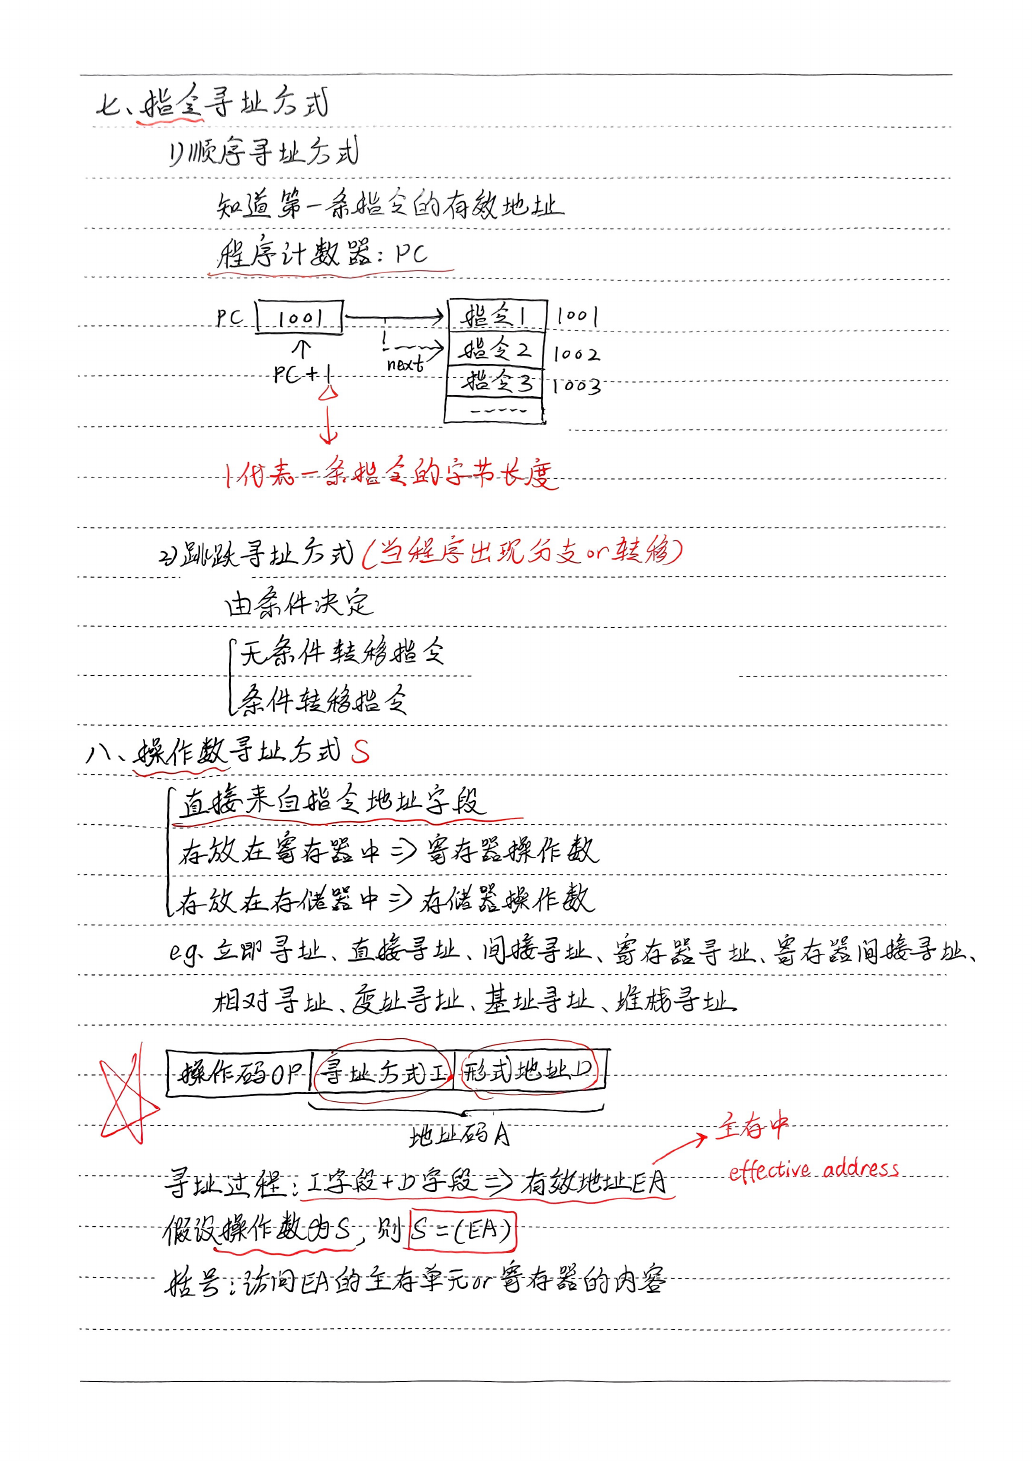 七、指令寻址方式
1)顺序寻址方式
知道第一条指令的有效地址
程序计数器: PC
PC 1001 指令1 1001
next 指令2 1002
PC+1 指令3 1003
......
1代表一条指令的字节长度
2)跳跃寻址方式(当程序出现分支or转移)
由条件决定
无条件转移指令
条件转移指令
八、操作数寻址方式 S
直接来自指令地址字段
存放在寄存器中⇒寄存器操作数
存放在存储器中⇒存储器操作数
eg.立即寻址、直接寻址、间接寻址、寄存器寻址、寄存器间接寻址、
相对寻址、变址寻址、基址寻址、堆栈寻址.
操作码OP 寻址方式I 形式地址D
地址码A
主存中
effective address
寻址过程:I字段+D字段⇒有效地址EA
假设操作数为S,则 S=(EA)
括号:访问EA的主存单元or寄存器的内容